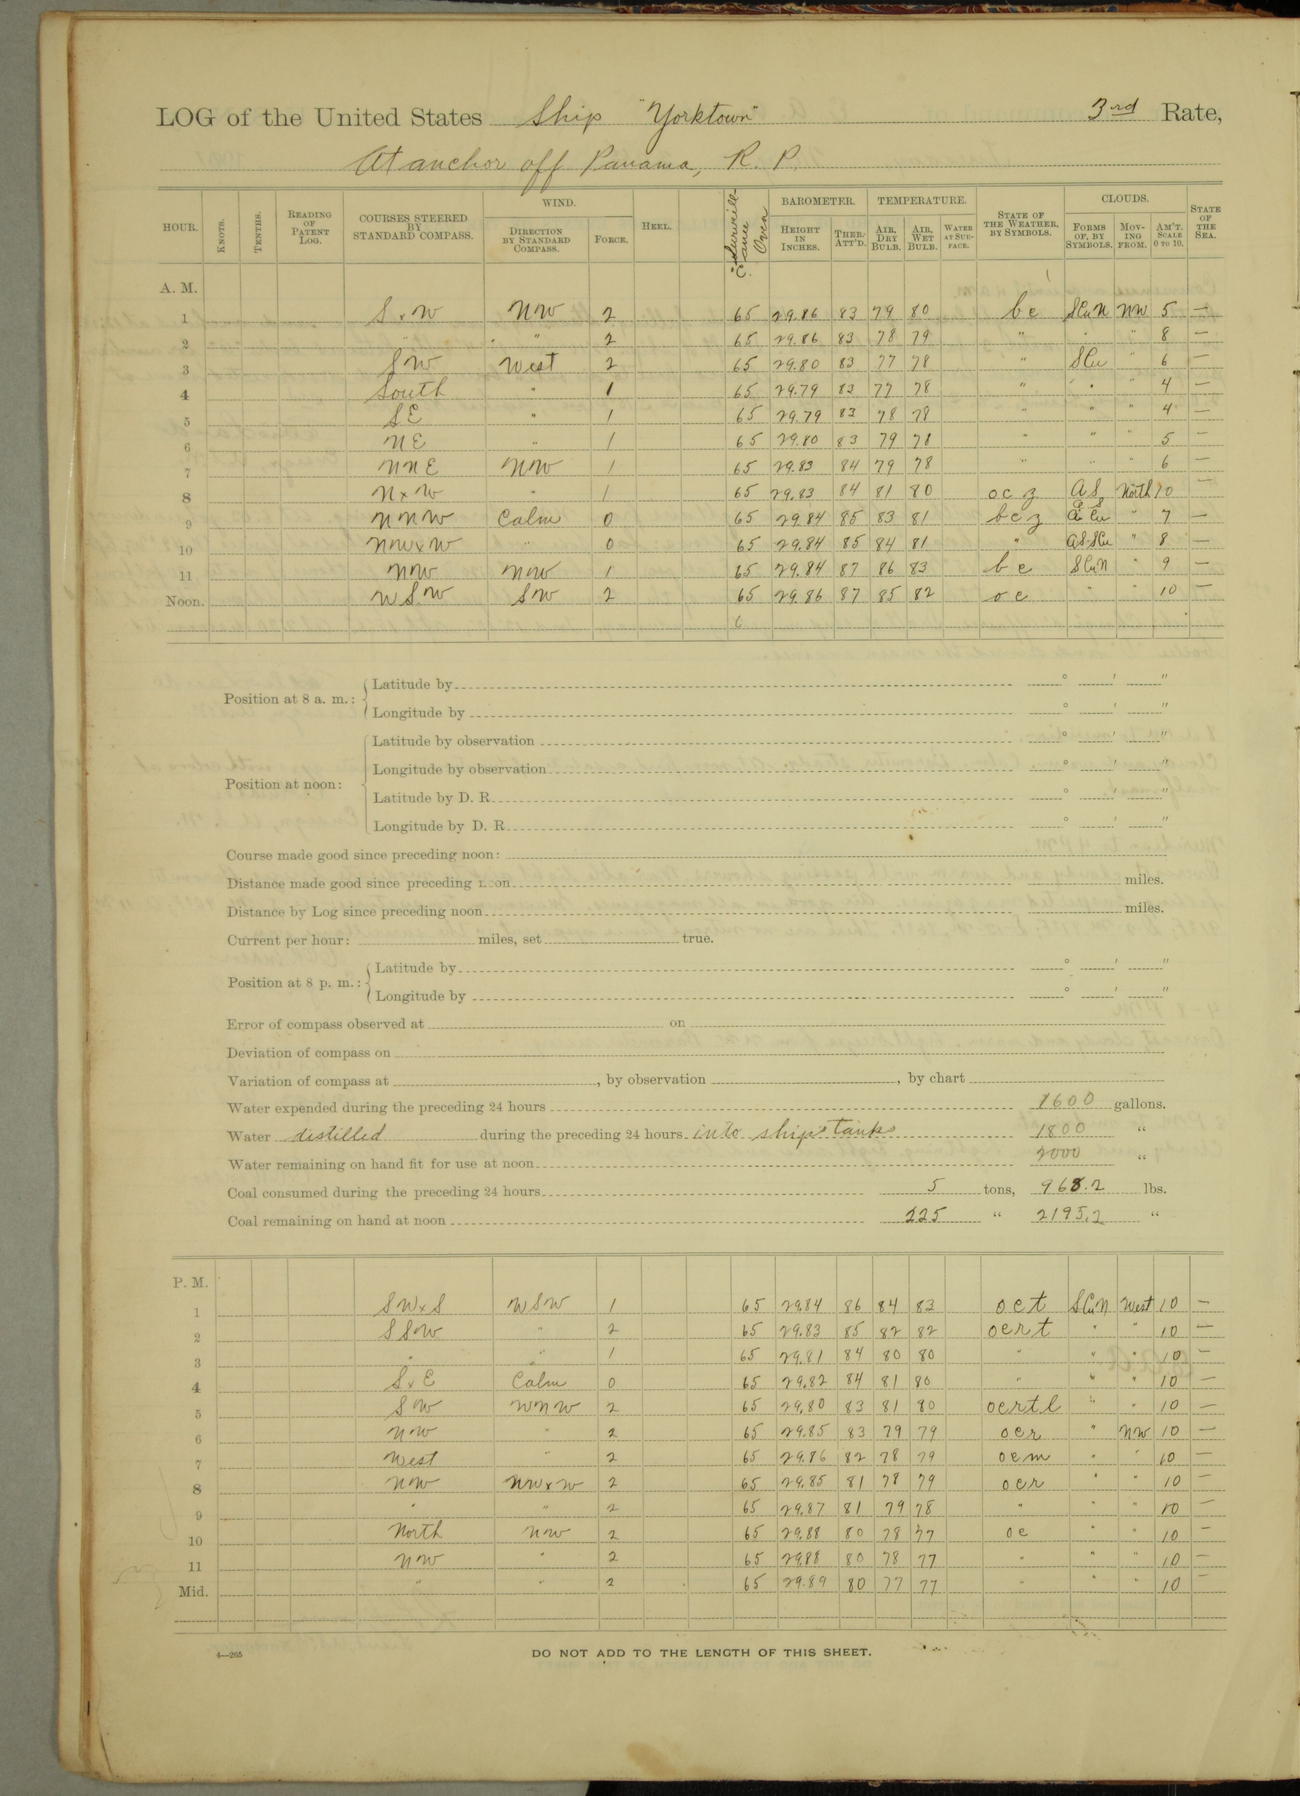 LOG of the United States Ship "Yorktown" 3rd Rate,
At anchor off Panama, R. P.
HOUR. KNOTS. TENTHS. READING OF PATENT LOG. COURSES STEERED BY STANDARD COMPASS. WIND. DIRECTION BY STANDARD COMPASS. FORCE. HEEL. BAROMETER. HEIGHT IN INCHES. THER. ATT'D. TEMPERATURE. AIR, DRY BULB. AIR, WET BULB. WATER AT SURFACE. STATE OF THE WEATHER, BY SYMBOLS. CLOUDS. FORMS OF, BY SYMBOLS. MOVING FROM. AM'T. SCALE 0 TO 10. STATE OF THE SEA.
A. M.
1 S x W NW 2 65 29.86 83 79 80 bc SCuN NW 5 —
2 " " 2 65 29.86 83 78 79 " " " 8 —
3 SW West 2 65 29.80 83 77 78 " SCu " 6 —
4 South " 1 65 29.79 83 77 78 " " " 4 —
5 SE " 1 65 29.79 83 78 78 " " " 4 —
6 NE " 1 65 29.80 83 79 78 " " " 5 —
7 NNE NW 1 65 29.83 84 79 78 " " " 6 —
8 N x W " 1 65 29.83 84 81 80 ocz AS North 10 —
9 NNW Calm 0 65 29.84 85 83 81 bcz " 7 —
10 NW x W " 0 65 29.84 85 84 81 " AS-SCu " 8 —
11 NW NW 1 65 29.84 87 86 83 bc SCuN " 9 —
Noon. WSW SW 2 65 29.86 87 85 82 oc " " 10 —
Position at 8 a. m.: Latitude by ° ' "
Longitude by ° ' "
Position at noon: Latitude by observation ° ' "
Longitude by observation ° ' "
Latitude by D. R. ° ' "
Longitude by D. R. ° ' "
Course made good since preceding noon:
Distance made good since preceding noon miles.
Distance by Log since preceding noon miles.
Current per hour: miles, set true.
Position at 8 p. m.: Latitude by ° ' "
Longitude by ° ' "
Error of compass observed at on
Deviation of compass on
Variation of compass at , by observation , by chart
Water expended during the preceding 24 hours 1600 gallons.
Water distilled during the preceding 24 hours into ships tanks 1800 "
Water remaining on hand fit for use at noon 2000 "
Coal consumed during the preceding 24 hours 5 tons, 968.2 lbs.
Coal remaining on hand at noon 225 " 2195.2 "
P. M.
1 SW x S WSW 1 65 29.84 86 84 83 oct SCuN West 10 —
2 SSW " 2 65 29.83 85 82 82 ocrt " " 10 —
3 " " 1 65 29.81 84 80 80 " " " 10 —
4 S x E Calm 0 65 29.82 84 81 80 " " " 10 —
5 SW WNW 2 65 29.80 83 81 80 ocrtl " " 10 —
6 NW " 2 65 29.85 83 79 79 ocr " NW 10 —
7 West " 2 65 29.86 82 78 79 ocm " " 10 —
8 NW NW x W 2 65 29.85 81 78 79 ocr " " 10 —
9 " " 2 65 29.87 81 79 78 " " " 10 —
10 North NW 2 65 29.88 80 78 77 oc " " 10 —
11 NW " 2 65 29.88 80 78 77 " " " 10 —
Mid. " " 2 65 29.89 80 77 77 " " " 10 —
4—265
DO NOT ADD TO THE LENGTH OF THIS SHEET.